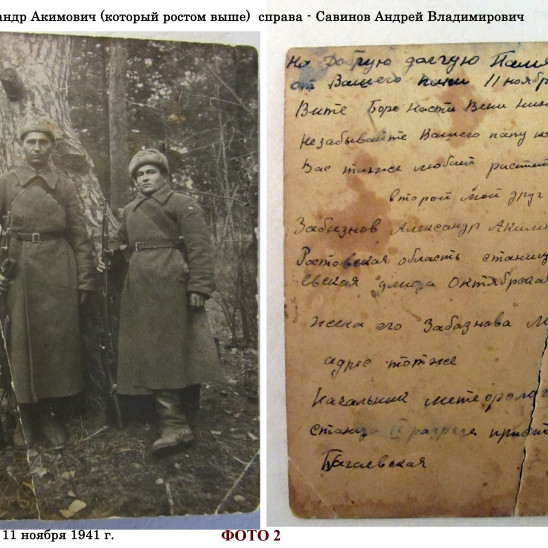 андр Акимович (который ростом выше) справа - Савинов Андрей Владимирович
На Добрую долгую Памя
от Вашего папи 11 ноябр
Вите Боре Насти Вени Нин
Незабывайте Вашего папу
Вас также любит растит
второй мой друг
Забазнов Александр Аким
Ростовская область станиц
евская улица Октябрская
жена его Забазнова М
адрес тотже
Начальник метеоролог
станци II разряда
Багаевская
11 ноября 1941 г.
ФОТО 2